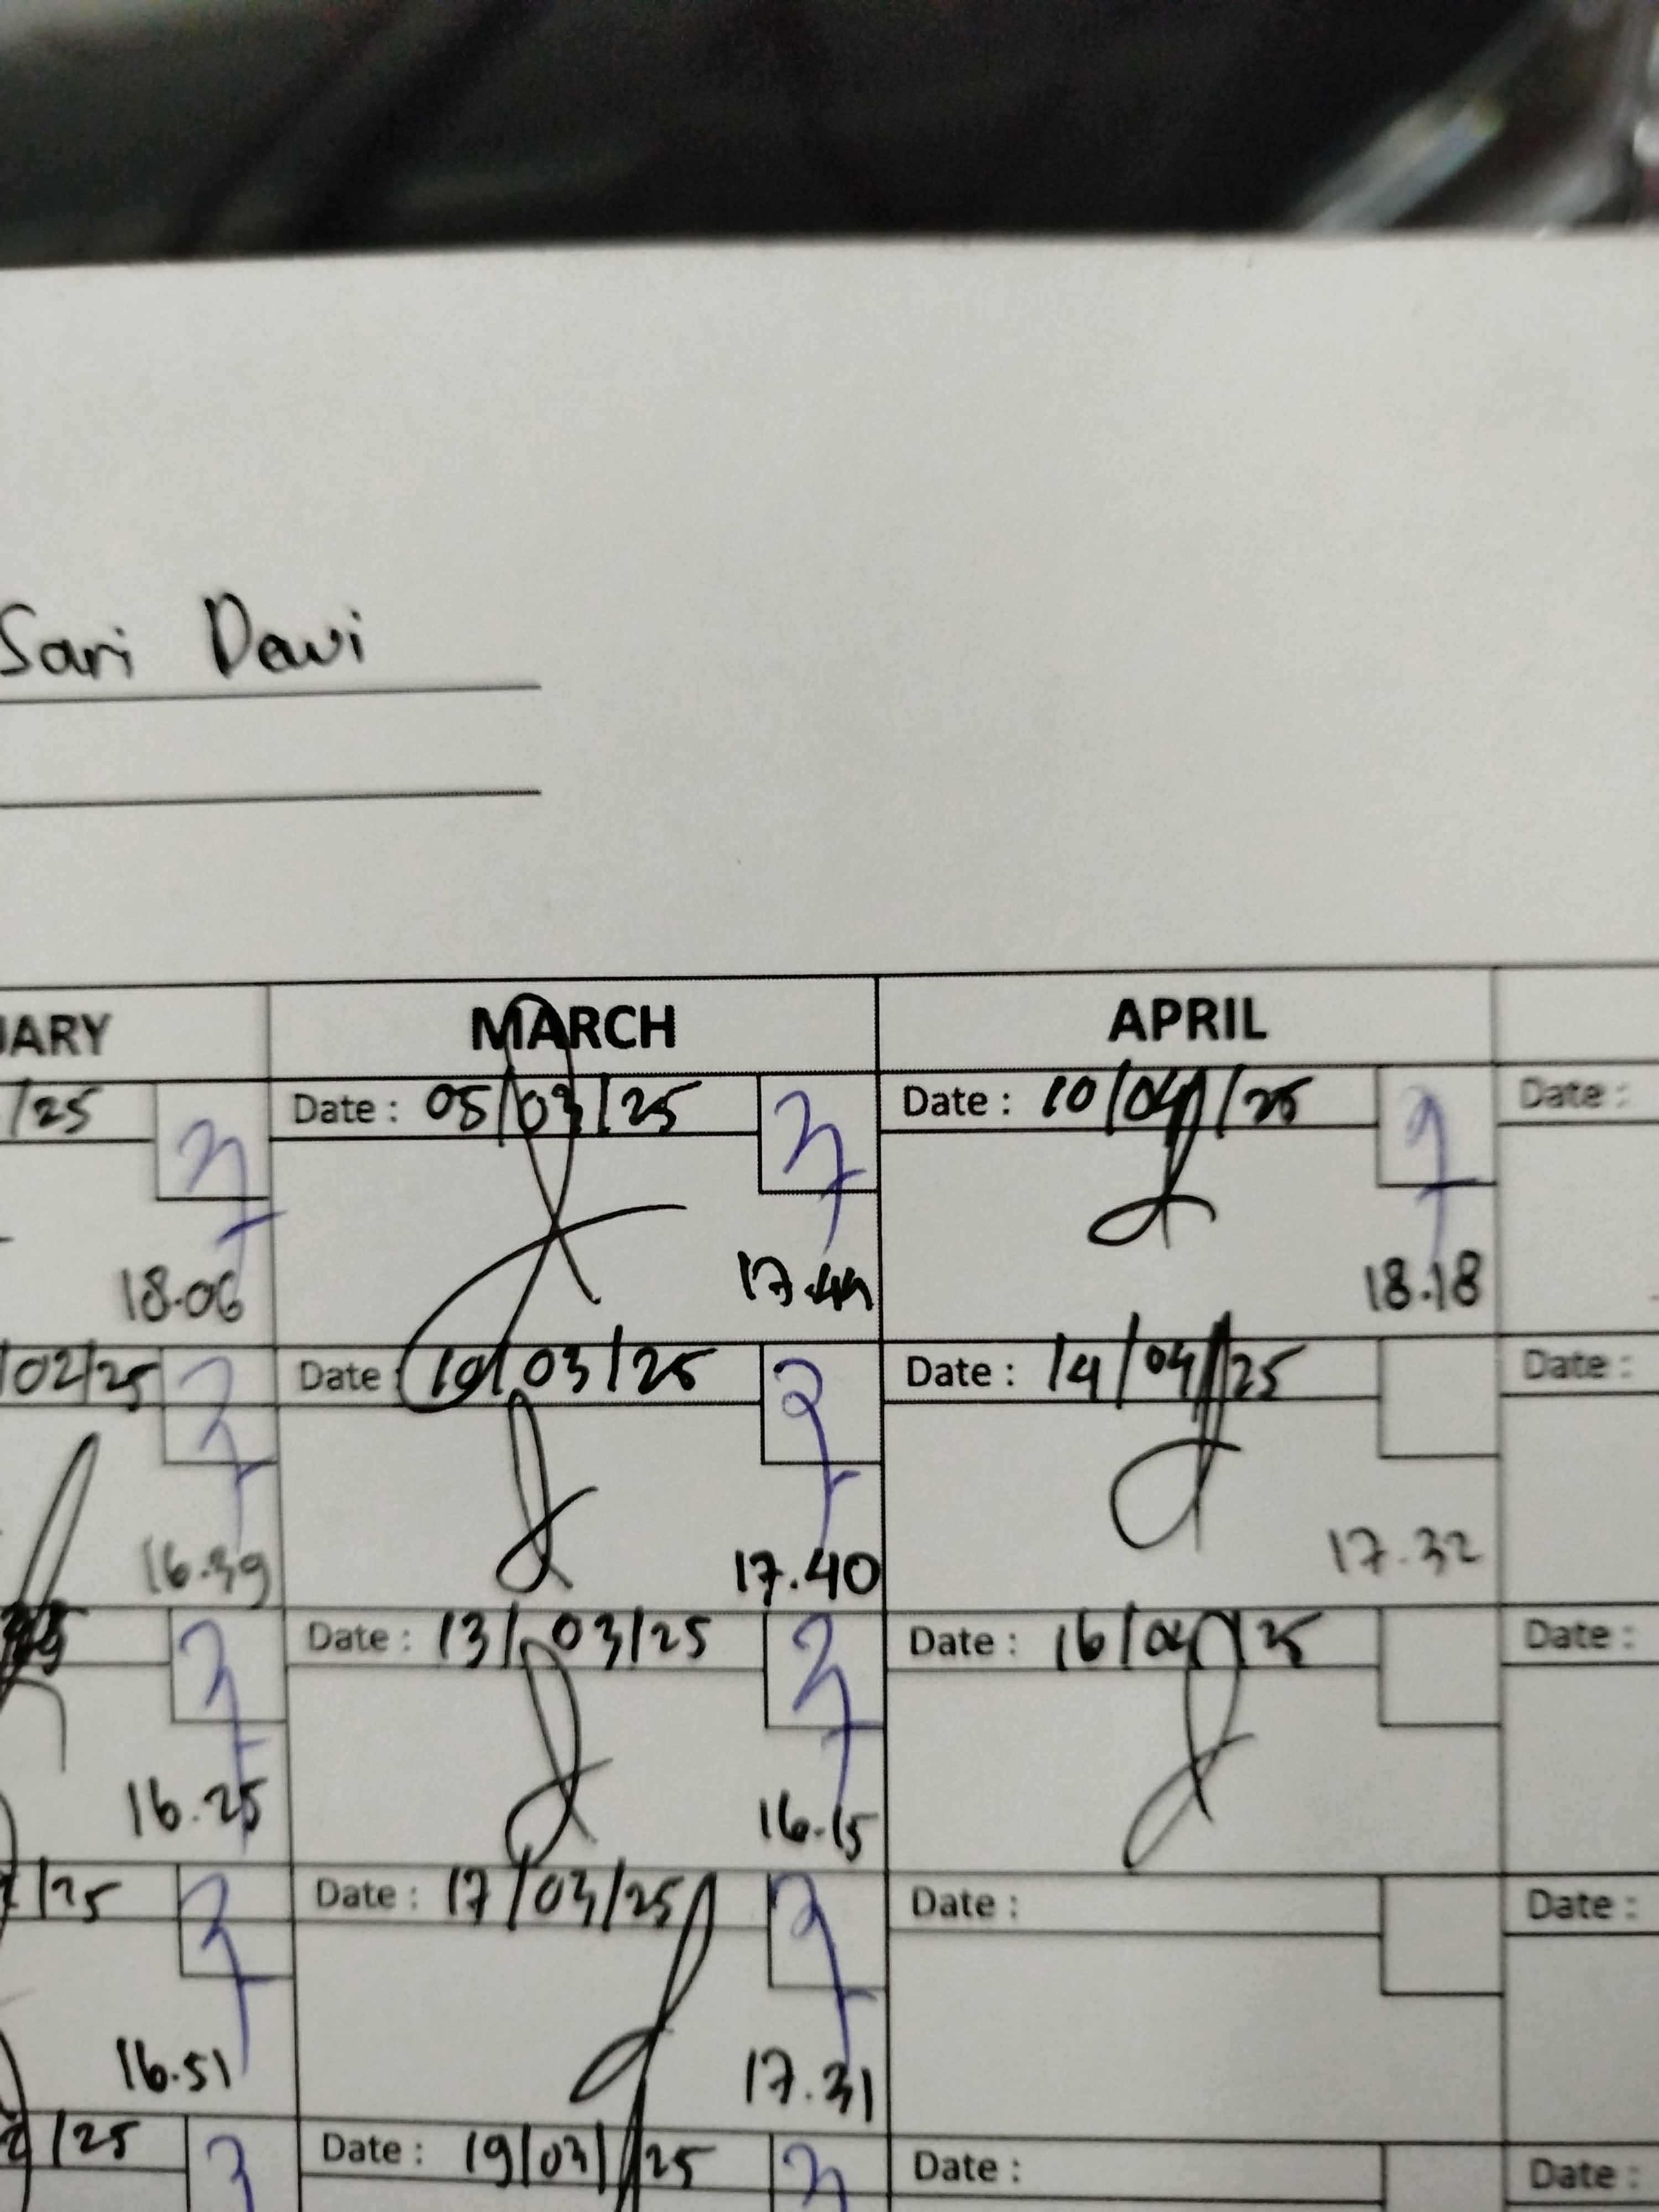 Sari Dewi
UARY MARCH APRIL
/25 Date : 05/03/25 Date : 10/04/25 Date :
18.06 17.44 18.18
/02/25 Date : 10/03/25 Date : 14/04/25 Date :
16.39 17.40 17.32
Date : 13/03/25 Date : 16/04/25 Date :
16.25 16.15
/25 Date : 17/03/25 Date : Date :
16.51 17.31
2/25 Date : 19/03/25 Date : Date :